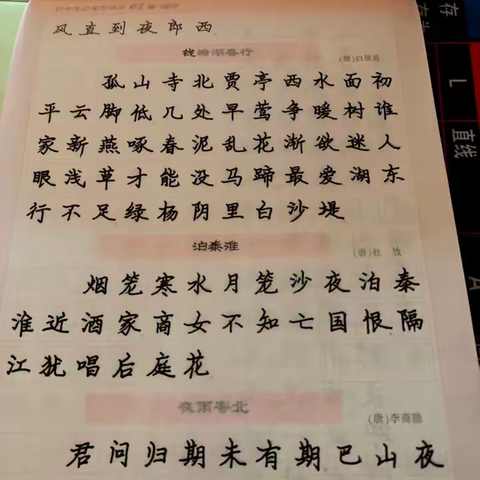 风直到夜郎西
钱塘湖春行
(唐)白居易
孤山寺北贾亭西水面初
平云脚低几处早莺争暖树谁
家新燕啄春泥乱花渐欲迷人
眼浅草才能没马蹄最爱湖东
行不足绿杨阴里白沙堤
泊秦淮
(唐)杜 牧
烟笼寒水月笼沙夜泊秦
淮近酒家商女不知亡国恨隔
江犹唱后庭花
夜雨寄北
(唐)李商隐
君问归期未有期巴山夜
存
L
直线
A